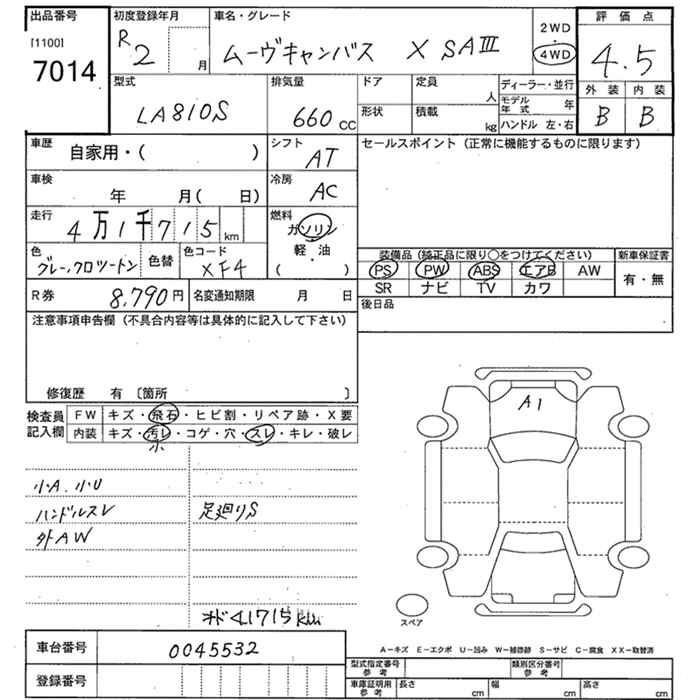 出品番号
[1100]
7014
初度登録年月
R2 月
車名・グレード
ムーヴキャンバス X SAⅢ
2WD
4WD
評価点
4.5
外装 内装
B B
型式
LA810S
排気量
660 cc
ドア
形状
定員 人
積載 kg
ディーラー・並行
モデル年式 年
ハンドル 左・右
車歴
自家用・( )
シフト
AT
セールスポイント (正常に機能するものに限ります)
車検
年 月( 日)
冷房
AC
走行
4万1千715 km
燃料
ガソリン
軽・油
( ・ )
色
グレー, クロツートン
色替
色コード
XF4
装備品 (純正品に限り〇をつけてください)
新車保証書
PS PW ABS エアB AW
SR ナビ TV カワ
有・無
R券
8,790円
名変通知期限 月 日
後日品
注意事項申告欄 (不具合内容等は具体的に記入して下さい)
修復歴 有 〔箇所 〕
検査員記入欄
FW キズ・飛石・ヒビ割・リペア跡・X要
内装 キズ・汚レ・コゲ・穴・スレ・キレ・破レ
小
小A. 小U
ハンドルスレ
足廻りS
外AW
オド41715km
A1
スペア
A-キズ E-エクボ U-凹み W-補修跡 S-サビ C-腐食 XX-取替済
車台番号
0045532
登録番号
型式指定番号 参考
類別区分番号 参考
車庫証明用 参考
長さ cm
幅 cm
高さ cm